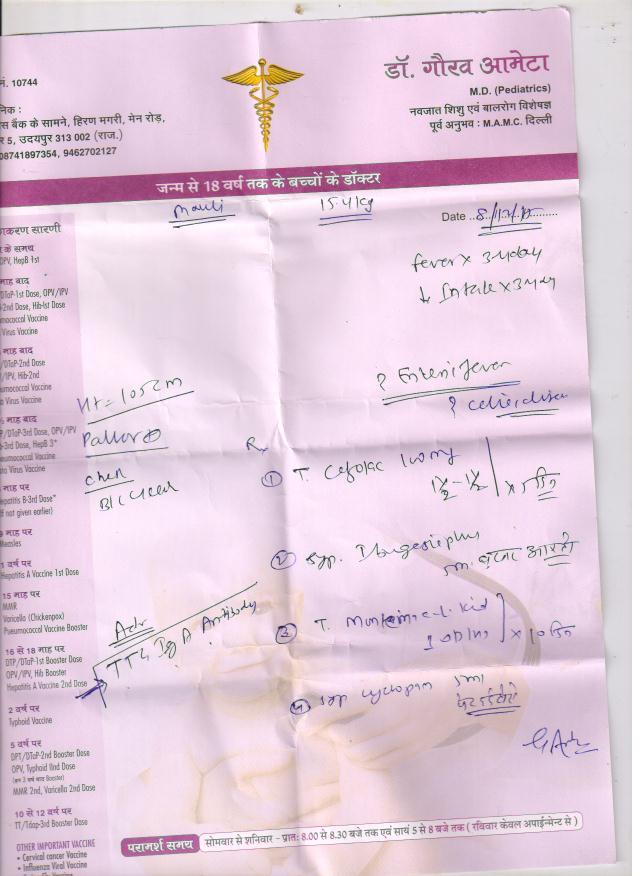 नं. 10744
डॉ. गौरव आमेटा
M.D. (Pediatrics)
नवजात शिशु एवं बालरोग विशेषज्ञ
पूर्व अनुभव : M.A.M.C. दिल्ली
निक :
स बैंक के सामने, हिरण मगरी, मेन रोड,
र 5, उदयपुर 313 002 (राज.)
08741897354, 9462702127
जन्म से 18 वर्ष तक के बच्चों के डॉक्टर
15.4 kg
Date
fever x 3-4 day
↓ Intake x 3-4 day
? Enteric fever
Ht = 105 cm
Pallor
chest
B/L clear
Rx
① T. Cefolac
1½ - 1½ x 5 दिन
② Syp. Ibugesic plus
5ml
③ T. Kid
x 10 दिन
④ Syp Cyclopam 5ml
Adv
TTG IgA Antibody
ाकरण सारणी
के समय
OPV, HepB 1st
माह बाद
DTaP-1st Dose, OPV/IPV
-2nd Dose, Hib-Ist Dose
mococcal Vaccine
Virus Vaccine
माह बाद
/DTaP-2nd Dose
/IPV, Hib-2nd
eumococcal Vaccine
Virus Vaccine
माह बाद
P/DTaP-3rd Dose, OPV/IPV
-3rd Dose, HepB 3*
neumococcal Vaccine
ta Virus Vaccine
माह पर
epatitis B-3rd Dose*
if not given earlier)
माह पर
Measles
1 वर्ष पर
Hepatitis A Vaccine 1st Dose
15 माह पर
MMR
Varicella (Chickenpox)
Pneumococcal Vaccine Booster
16 से 18 माह पर
DTP/DTaP-1st Booster Dose
OPV/IPV, Hib Booster
Hepatitis A Vaccine 2nd Dose
2 वर्ष पर
Typhoid Vaccine
5 वर्ष पर
DPT/DTaP-2nd Booster Dose
OPV, Typhoid IInd Dose
MMR 2nd, Varicella 2nd Dose
10 से 12 वर्ष पर
TT/Tdap-3rd Booster Dose
OTHER IMPORTANT VACCINE
• Cervical cancer Vaccine
• Influenza Viral Vaccine
परामर्श समय सोमवार से शनिवार - प्रातः 8.00 से 8.30 बजे तक एवं सायं 5 से 8 बजे तक ( रविवार केवल अपाईन्मेन्ट से )